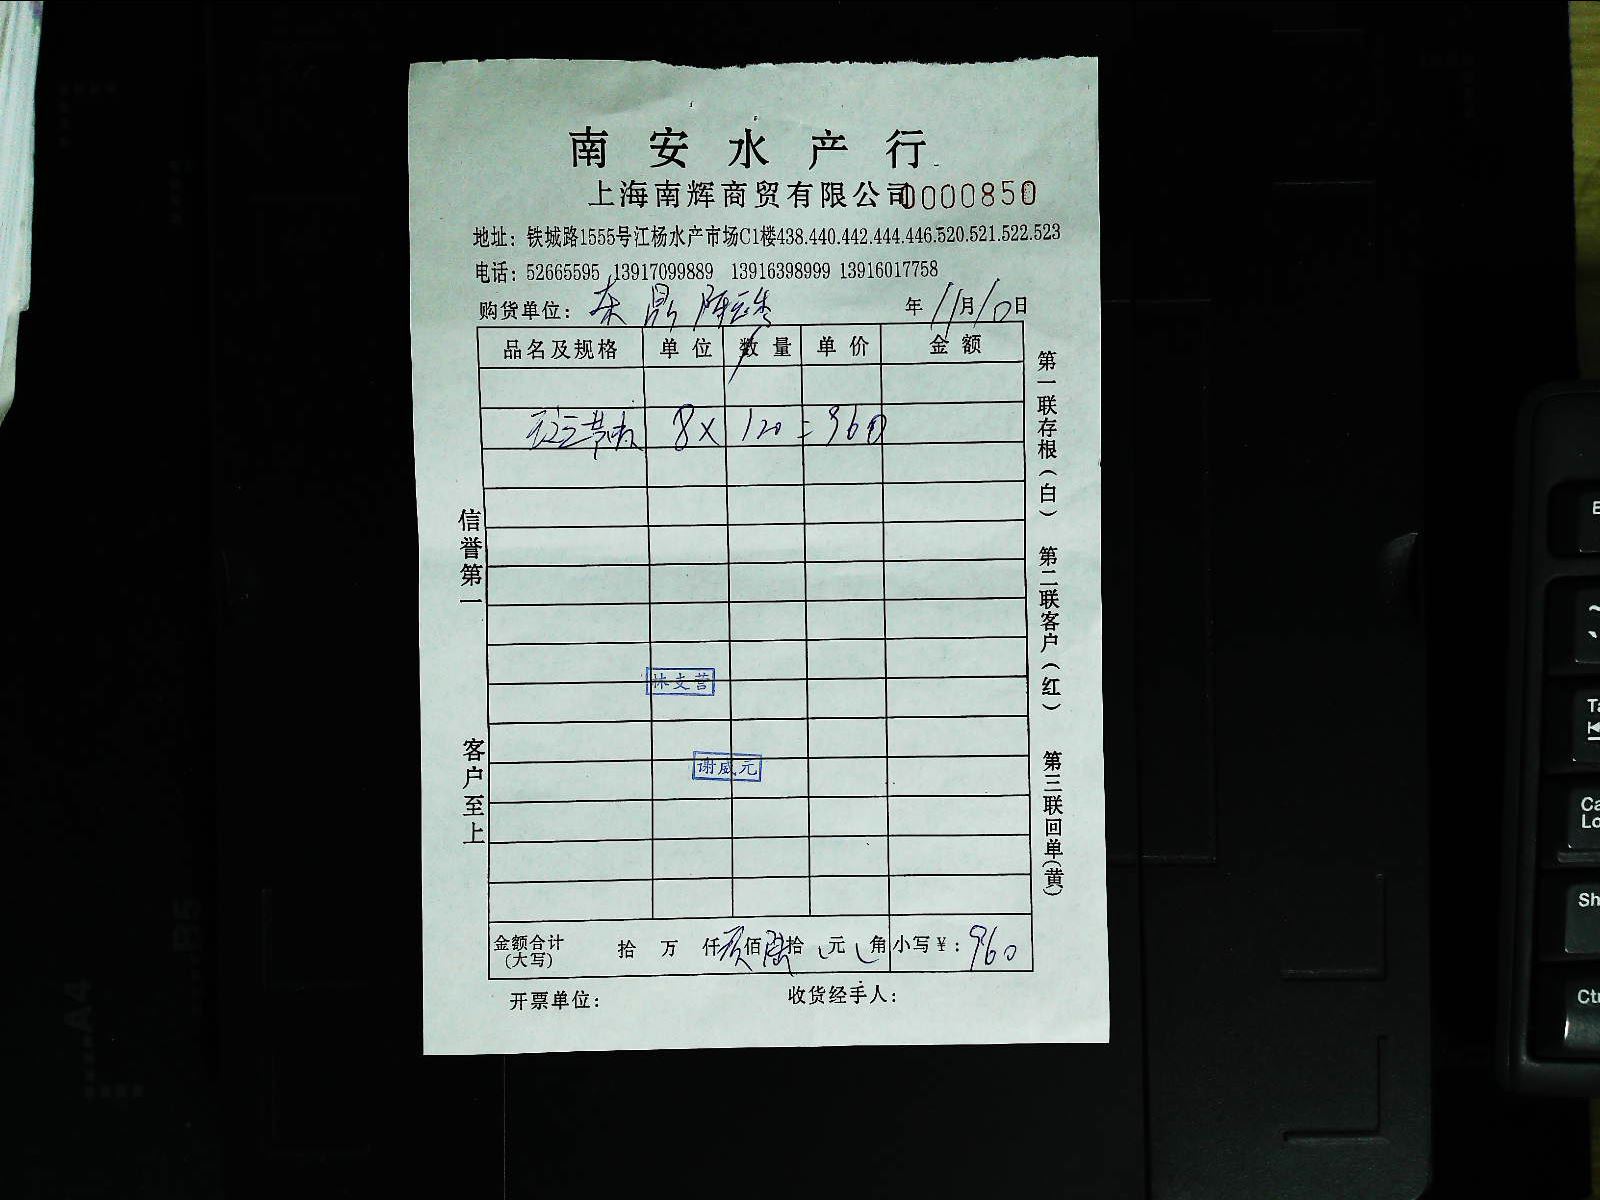 南安水产行
上海南辉商贸有限公司 0000850
地址：铁城路1555号江杨水产市场C1楼438.440.442.444.446.520.521.522.523
电话：52665595 13917099889 13916398999 13916017758
购货单位：东鼎 年11月10日
品名及规格 单位 数量 单价 金额
8× 120 = 960
信誉第一
客户至上
林支营
谢威元
第一联存根（白） 第二联客户（红） 第三联回单（黄）
金额合计（大写） 拾 万 仟 玖佰 陆拾 元 角 小写￥：960
开票单位： 收货经手人：
A4
B5